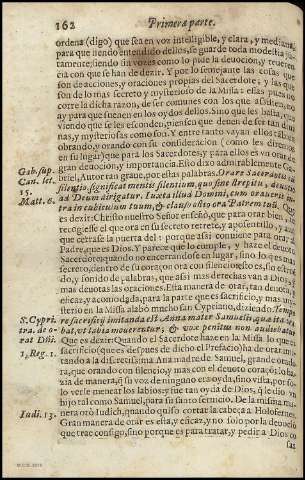 162
Primera parte.
ordena (digo) que sea en voz intelligible, y clara, y mediana,
para que siendo entendido dellos, se guarde toda modestia jũ-
tamente; siendo sin vozes como lo pide la deuocion, y reueren
cia con que se han de dezir. Y por lo semejante las cosas que
son de acciones, y oraciones propias del Sacerdote, y las que
son de lo mas secreto y mysterioso de la Missa: estas
corre la dicha razon, de ser comunes con los que assisten, no
ay para que suenen en los oydos dellos. Sino que les haga,
viendo que se les esconden, piensen que deuen ser diui-
nas, y mysteriosas como son. Y entre tanto vayan ellos tãbiẽ
obrando, y orando con su consideracion (como les diremos
en su lugar) que para los Sacerdotes, y para ellos es vn orar de
gran deuocion, y importancia. Esto dixo admirablemente Ga
Gab. sup.
briel, Autor tan graue, por estas palabras. Orare Sacerdotis in
Can. lec.
silentio, significat mentis silentium, quo sine strepitu, deuotè
15.
ad Deum dirigatur. Iuxta illud Domini, cum oraueris in-
Matt. 6.
tra in cubiculum tuum, & clauso ostio ora Patrem tuũ. Que
es dezir: Christo nuestro Señor enseñó, que para orar bien se
recogiesse el que ora en su secreto retrete, y aposentillo, y
que cerrasse la puerta del: porque assi conuiene para orar al
Padre, que es Dios. Y parece que lo cumple, y haze el deuoto
Sacerdote; quando no encerrandose en lugar, sino lo que es mas
secreto, dentro de su coraçon ora con silencio:
do, y sonido de palabras, que assi mas derechas van a Dios, y
mas deuotas las oraciones. Esta manera de orar, tan deuota,
eficaz, y acomodada, para la parte que es sacrificio, y mas
mysterio en la Missa, alabò mucho san Cypriano, diziendo. Tempo
S. Cypri.
re sacrificij imitanda est Anna mater Samuelis, quæ in
tra. de o-
labia mouerentur; & vox penitus non audiebatur.
rat. Dñi.
Que es dezir: Quando el Sacerdote haze en la Missa lo que es
1. Reg. 1.
sacrificio (que es despues de dicho el Prefacio) ha de orar imi-
tando a la discretissima Ana madre de Samuel, grande orado-
ra, que orando con silencio, y mas con el deuoto coraçon, lo ha-
zia de manera, que su voz de ninguno era oyda, sino vista, por so-
lo verse menear los labios: y fue tan oyda de Dios, que le dio vn
hijo tal como Samuel, para su santo seruicio. De la misma ma
Iudi. 13.
nera orò Iudich, quando quiso cortar la cabeça a Holofernes.
Gran manera de orar es esta, y eficaz, y no solo por la deuociõ
que trae consigo, sino porque es para tratar, y pedir a Dios co
sas